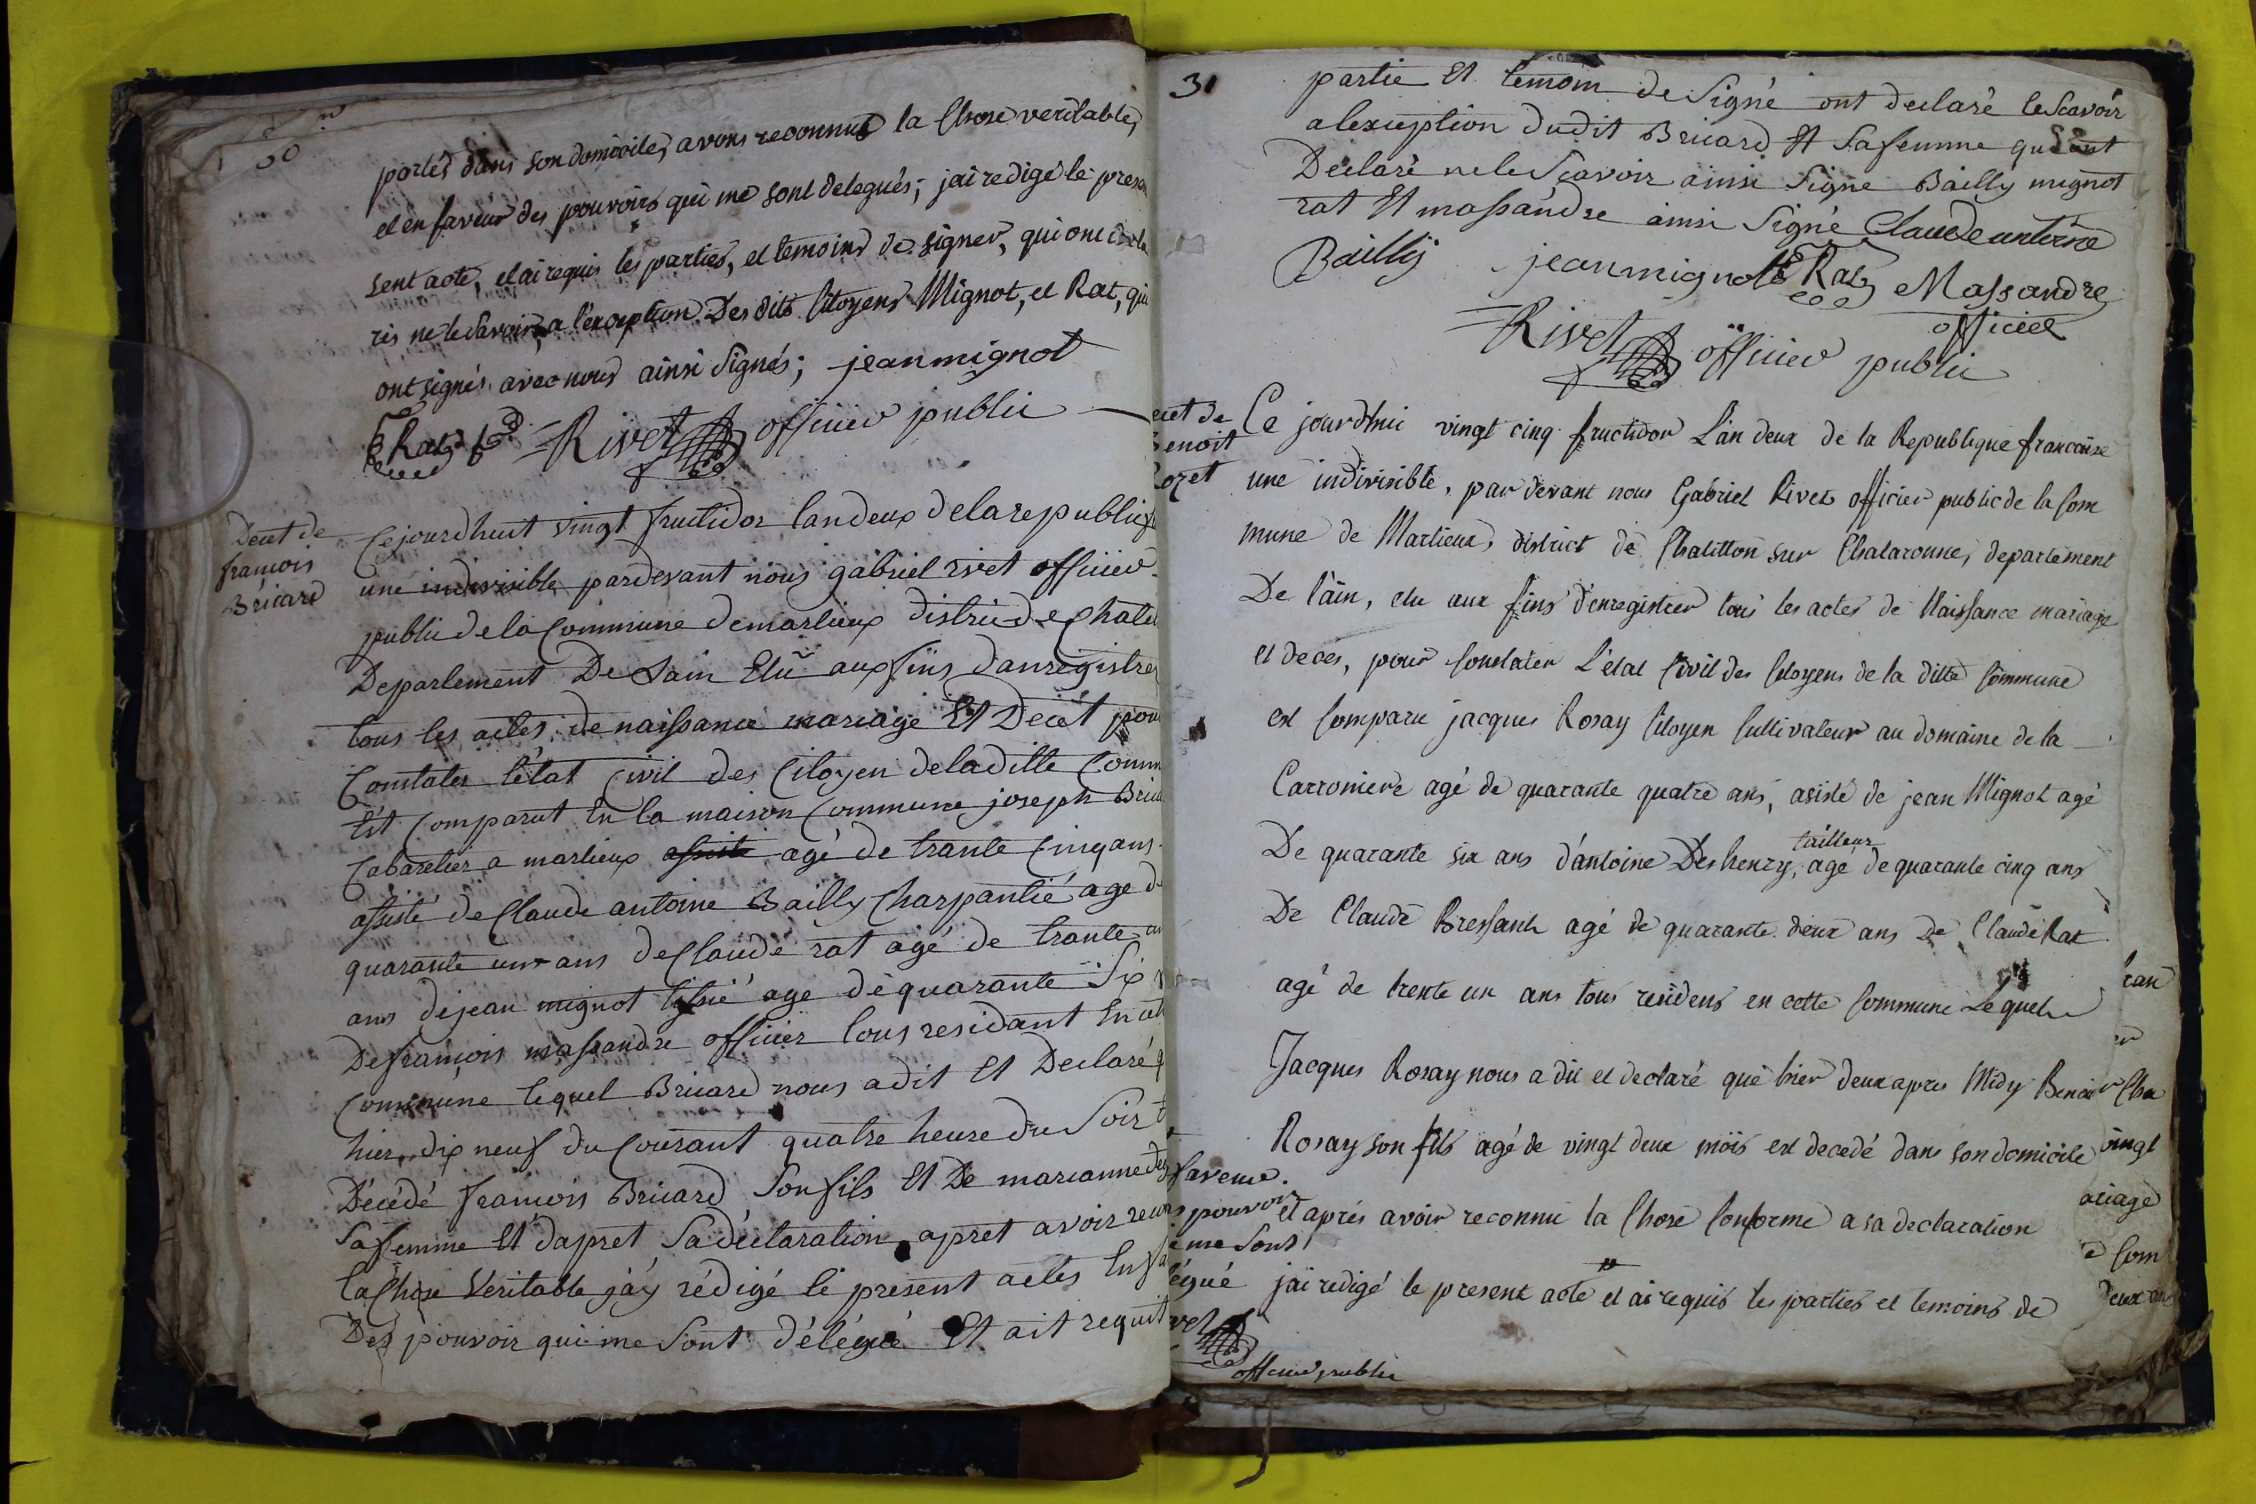 30
portés dans son domicile, avons reconnus la Chose veritable,
et en faveur des pouvoirs qui me sont delegués; jai redigé le pre
sent acte, et ai requis les parties, et temoins de signer, qui ont
rés ne le Savoir, a l'exception Des dits Citoyens Mignot, et Rat, qui
ont signés avec nous ainsi Signés; jean mignot
C Rat = Rivet officier public
Decet de
francois
Bricard
Cejourdhuit vingt fructidor lan deux de la republi
une indivisible pardevant nous gabriel rivet officier
public de la Commune de marlieux distric de Chati
Departement De Lain Elu aux fins danregistrer
tous les actes de naissance mariage Et Decét pour
Constater l'état Civil des Citoyen de la ditte Comm
Est Comparut En la maison Commune joseph Brica
Cabaretier a marlieux agé de trante Cinq ans
assisté de Claude antoine Bailly Charpantié agé de
quarante un ans de Claude rat agé de trante un
ans de jean mignot tissié agé de quarante Six
De francois massandre officier tous residant En cet
Commune lequel Bricard nous a dit Et Declaré q
hier dix neuf du Courant quatre heure du Soir
Décédé francois Bricard Son fils Et De marianne
Sa femme Et dapret Sa déclaration apret avoir recon
la Chose Veritable jáy rédigé le present actes En fa
Des pouvoir qui me Sont délégué Et ait requit
31
partie Et temoin de Signé ont declaré le Scavoir
a lexception dudit Bricard Et Sa femme qui ont
Déclaré ne le Scavoir ainsi Signé Bailly mignot
rat Et massandre ainsi Signé Claude antoine
Bailly jean mignot C Rat Massandre
officier
= Rivet officier public
ecet de
Benoit
Rozet
Ce jourdhui vingt cinq fructidor L'an deux de la Republique francaise
une indivisible, par devant nous Gabriel Rivet officier public de la Com
mune de Marlieux, district de Chatillon sur Chalaronne, departement
De l'ain, elu aux fins d'enregistrer tous les actes de Naissance mariage
et deces, pour Constater L'état Civil des Citoyens de la ditte Commune
est Comparu jacques Rosay Citoyen Cultivateur au domaine de la
Carroniere agé de quarante quatre ans, asisté de jean Mignot agé
tailleur
De quarante six ans d'antoine Deshenry, agé de quarante cinq ans
De Claude Bressant agé de quarante deux ans De Claude Rat
agé de trente un ans tous residens en cette Commune Lequel
Jacques Rosay nous a dit et declaré que hier deux apres Midy Benoit
Rosay son fils agé de vingt deux mois est decedé dans son domicile
et après avoir reconnu la Chose Conforme a sa declaration
jai redigé le present acte et ai requis les parties et temoins de
faveur
pouvoir
me Sont
égué
officier public
Cha
vingt
ariage
Com
deux